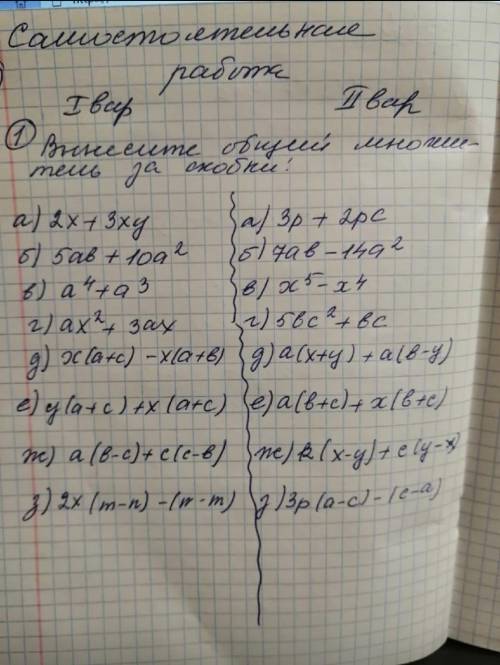 Самостоятельная
работа
I вар II вар
① Вынесите общий множи-
тель за скобки:
а) 2x + 3xy
б) 5ab + 10a²
в) a⁴ + a³
г) ax² + 3ax
д) x(a+c) - x(a+b)
е) y(a+c) + x(a+c)
ж) a(b-c) + c(c-b)
з) 2x(m-n) - (n-m)
а) 3p + 2pc
б) 7ab - 14a²
в) x⁵ - x⁴
г) 5bc² + bc
д) a(x+y) + a(b-y)
е) a(b+c) + x(b+c)
ж) (x-y) + c(y-x)
з) 3p(a-c) - (c-a)